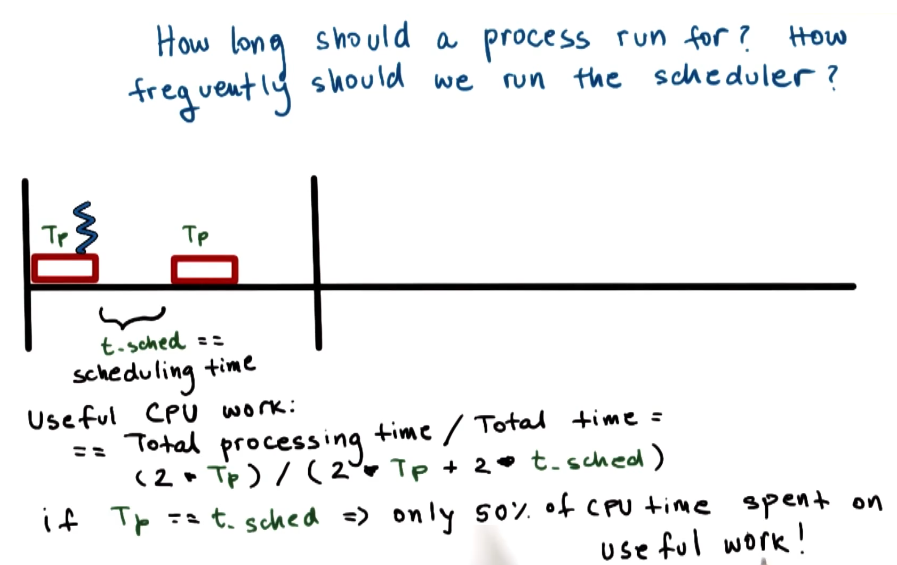 How long should a process run for? How
frequently should we run the scheduler?
Tp Tp
t_sched ==
scheduling time
Useful CPU work:
== Total processing time / Total time =
(2 * Tp) / (2 * Tp + 2 * t_sched)
if Tp == t_sched => only 50% of CPU time spent on
useful work!